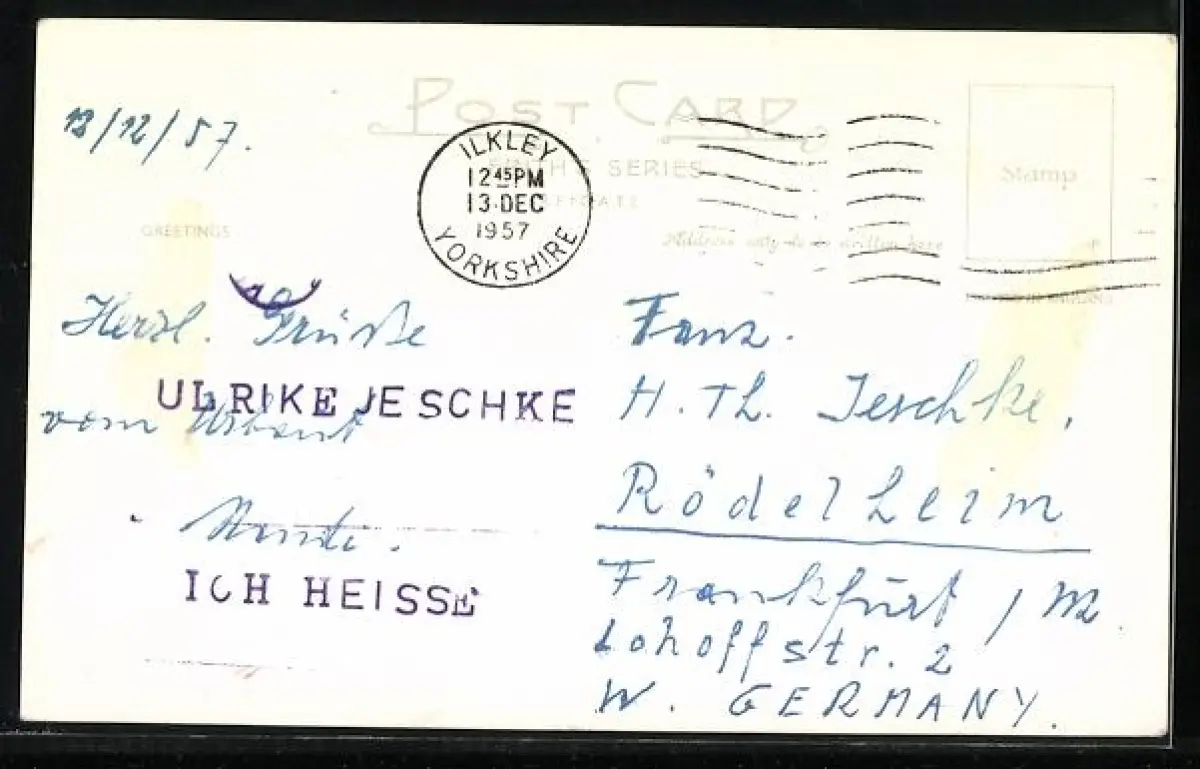 POST CARD
SERIES
GREETINGS
Stamp
Address only to be written here
ILKLEY
12 45 PM
13 DEC
1957
YORKSHIRE
13/12/57.
Herzl. Grüße
vom
ULRIKE JESCHKE
ICH HEISSE
Fam.
H. Th. Jeschke,
Rödelheim
Frankfurt / M.
Lohoffstr. 2
W. GERMANY.